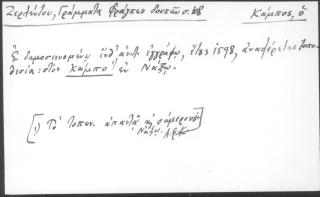 Ζερλέντου, Γράμματα Φράγκων δουκῶν σ. 68
Κάμπος, ὁ
Ἐ δημοσιευομένῳ ὑπ' ἀντ. ἐγγράφῳ, ἔτους 1598, ἀναφέρεται τοπο-
θεσία: στὸν Κάμπο ¹⁾ ἐν Νάξῳ.
[1) Τὸ τοπων. ἀπαντᾷ καὶ σήμερον ἐν
Νάξῳ.